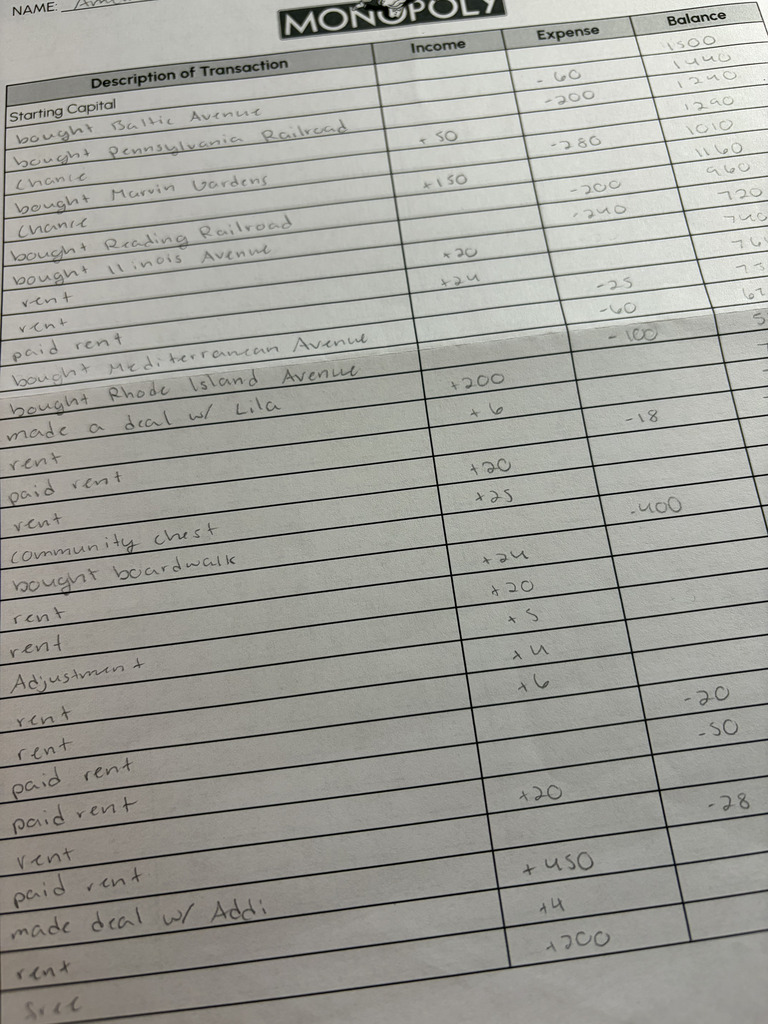 NAME:
MONOPOLY
Description of Transaction Income Expense Balance
Starting Capital 1500
bought Baltic Avenue -60 1440
bought Pennsylvania Railroad -200 1240
Chance +50 1290
bought Marvin Gardens -280 1010
Chance +150 1160
bought Reading Railroad -200 960
bought Illinois Avenue -240 720
rent +20 740
rent +24
paid rent -25
bought Mediterranean Avenue -60
bought Rhode Island Avenue -100
made a deal w/ Lila +200
rent +6
paid rent -18
rent +20
community chest +25
bought boardwalk -400
rent +24
rent +20
Adjustment +5
rent +4
rent +6
paid rent -20
paid rent -50
rent +20
paid rent -28
made deal w/ Addi +450
rent +4
+200